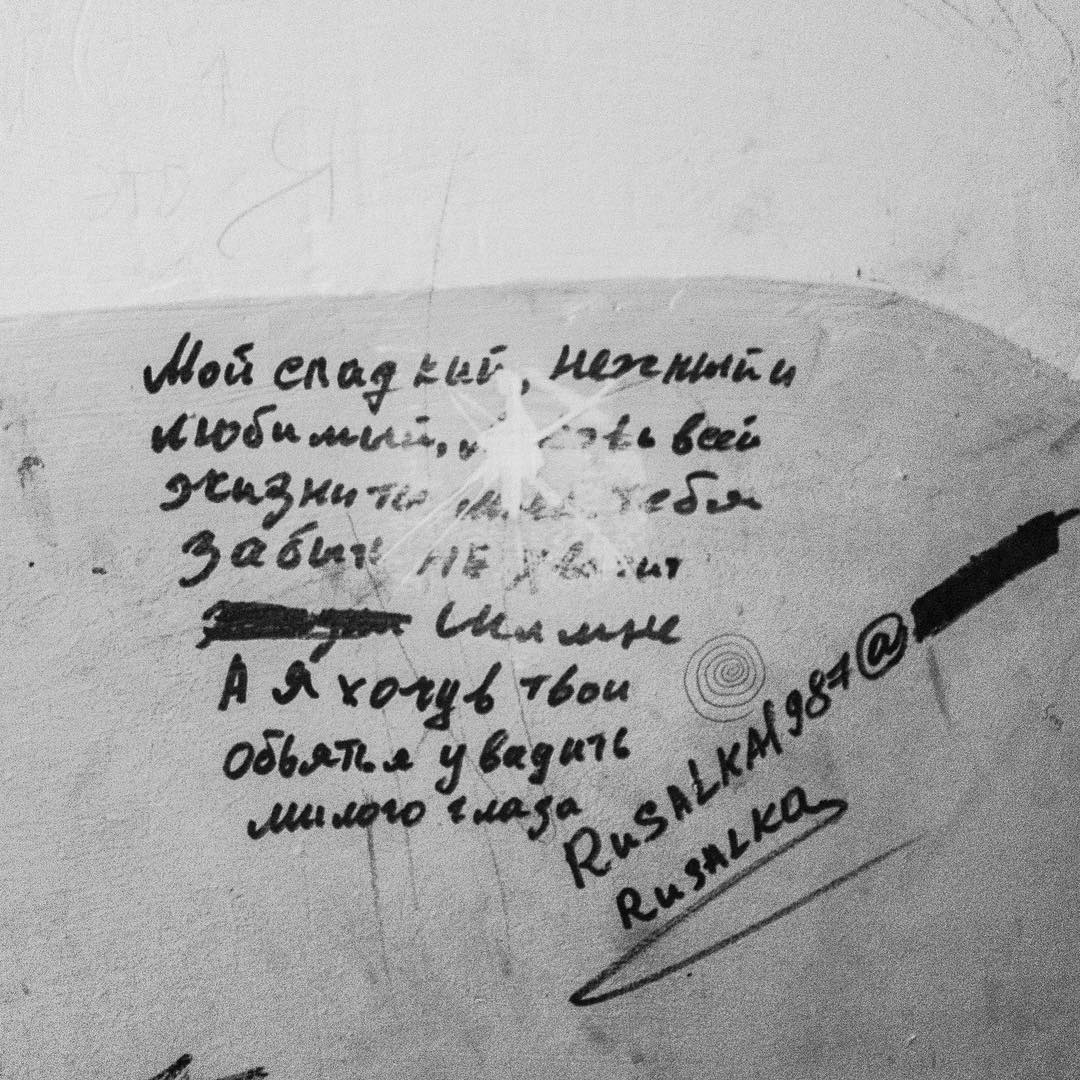 это Я
Мой сладкий, нежный и
любимый, всей
жизни тебя
забыть НЕ хватит
мне
А Я хочу в твои
обьятья увидить
милого глаза
RuSALKA1987@
RuSALKA